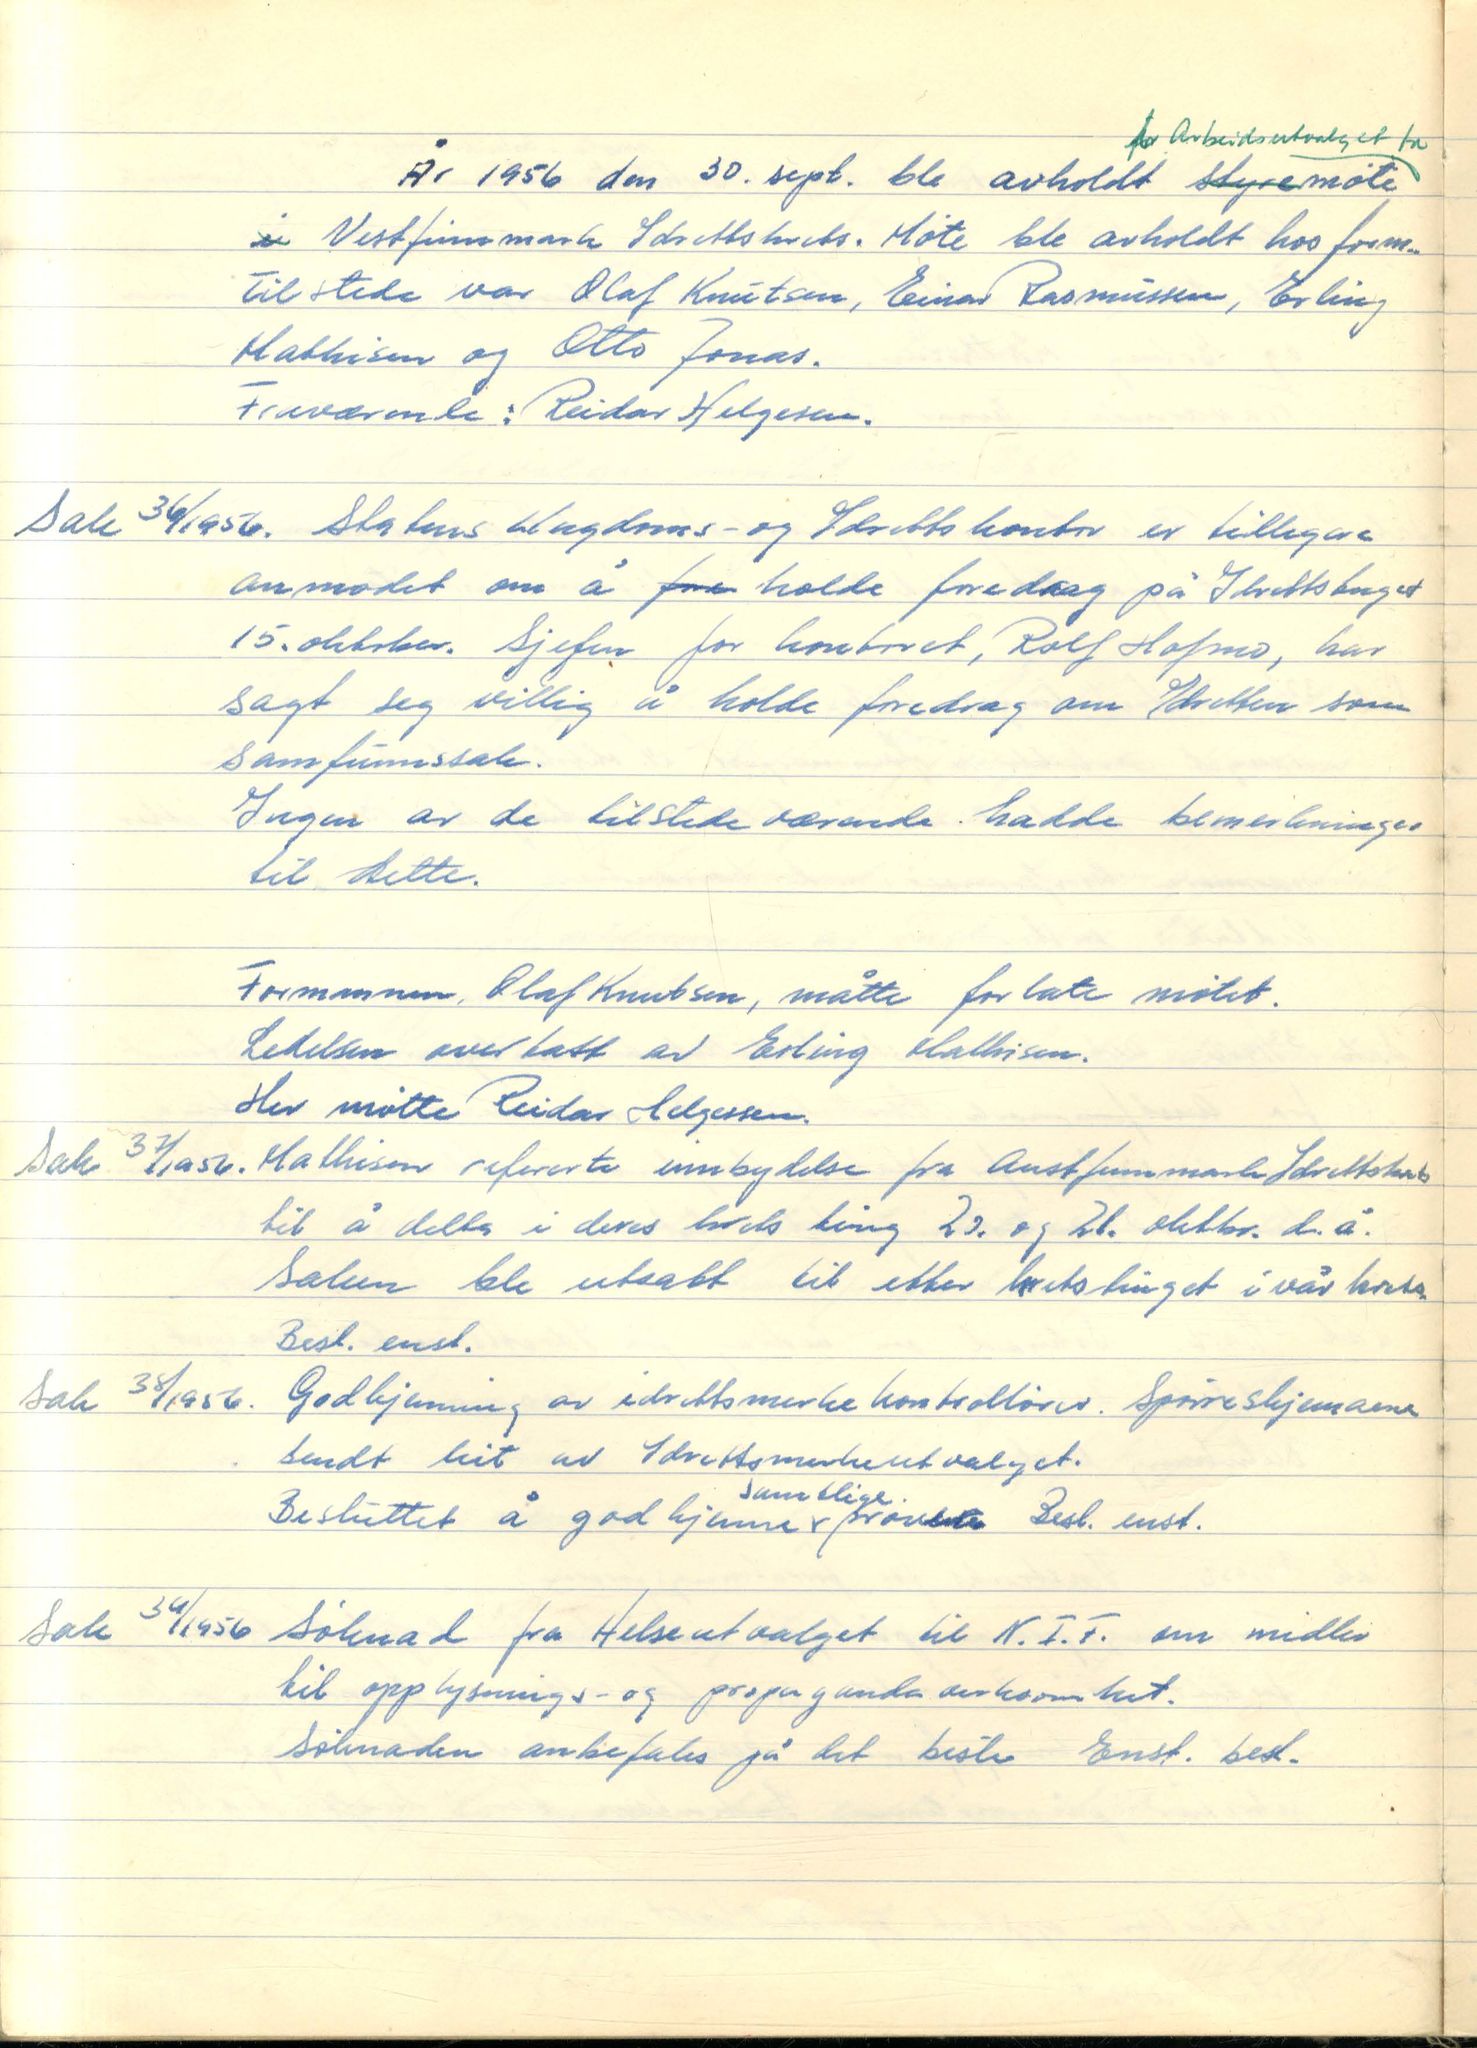 for Arbeidsutvalget for
År 1956 den 30. sept. ble avholdt styremøte
i Vestfinnmark Idrettskrets. Møte ble avholdt hos form.
Tilstede var Olaf Knutsen, Einar Rasmussen, Erling
Mathisen og Otto Jonas.
Fraværende: Reidar Helgesen.
Sak 36/1956. Statens Ungdoms- og Idrettskontor er tillegere
anmodet om å fore holde foredrag på Idrettstinget
15. oktober. Sjefen for kontoret, Rolf Hofmo, har
sagt seg villig å holde foredrag om Idretten som
samfunnssak.
Ingen av de tilstedeværende hadde bemerkninger
til dette.
Formannen, Olaf Knutsen, måtte forlate møtet.
Ledelsen overtatt av Erling Mathisen.
Her møtte Reidar Helgessen.
Sak 37/1956. Mathisen refererte innbydelse fra Austfinnmark Idrettskrets
til å delta i deres krets ting 20. og 21. oktbr. d.å.
Saken ble utsatt til etter kretstinget i vår krets.
Besl. enst.
Sak 38/1956. Godkjenning av idrettsmerkekontrollører. Spørreskjemaene
sendt hit av Idrettsmerkeutvalget.
samtlige
Besluttet å godkjenne prøvene Besl. enst.
Sak 39/1956 Søknad fra Helseutvalget til N.I.F. om midler
til opplysnings- og propagandavirksomhet.
Søknaden anbefales på det beste Enst. besl.